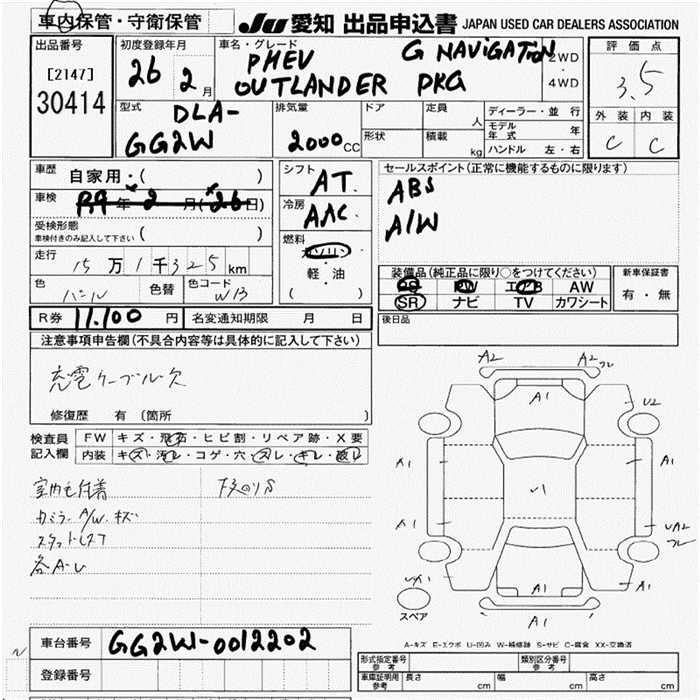 車内保管・守衛保管
JU 愛知 出品申込書 JAPAN USED CAR DEALERS ASSOCIATION
出品番号
[2147]
30414
初度登録年月
26 2月
車名・グレード
PHEV G NAVIGATION
OUTLANDER PKG
2WD
・
4WD
評価点
3.5
外装 内装
C C
型式
DLA-
GG2W
排気量
2000cc
ドア
定員 人
形状
積載 kg
ディーラー・並行
モデル年式 年
ハンドル 左・右
車歴
自家用・( )
車検
R9年2月(26日)
受検形態
車検付きのみ記入して下さい ( )
走行
15万1千325km
色
パール
色替
色コード
W13
シフト
AT
冷房
AAC
燃料
ガソリン
・
軽・油
( )
セールスポイント(正常に機能するものに限ります)
ABS
A/W
装備品(純正品に限り○をつけてください)
PS PW エアB AW
SR ナビ TV カワシート
新車保証書
有・無
後日品
R券 11.100円
名変通知期限 月 日
注意事項申告欄(不具合内容等は具体的に記入して下さい)
充電ケーブル欠
修復歴 有(箇所 )
検査員
記入欄
FW キズ・飛石・ヒビ割・リペア跡・X要
内装 キズ・汚レ・コゲ・穴・スレ・キレ・破レ
カミラー A/W.キズ
各A・U
A2 A2
A1
U2
A1 A1
A1 UA2
A1 A1
スペア
A-キズ E-エクボ U-凹み W-補修跡 S-サビ C-腐食 XX-交換済
車台番号 GG2W-0012202
登録番号
形式指定番号
参考
類別区分番号
参考
車庫証明用
参考
長さ cm 幅 cm 高さ cm